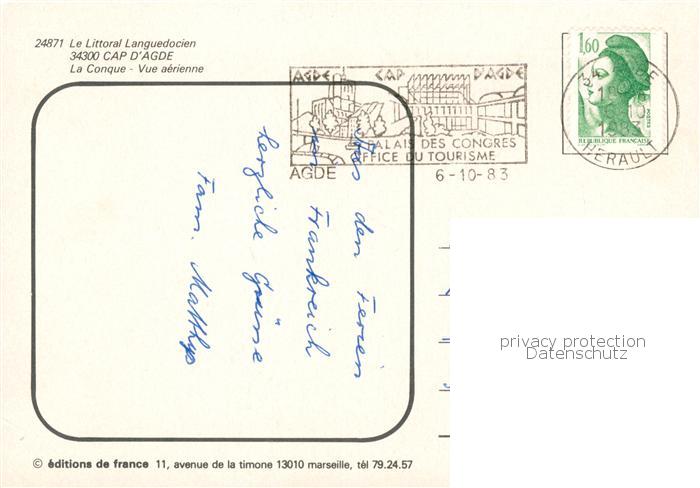 24871 Le Littoral Languedocien
34300 CAP D'AGDE
La Conque - Vue aérienne
AGDE CAP D'AGDE
PALAIS DES CONGRES
OFFICE DU TOURISME
AGDE
6-10-83
1,60
POSTES
REPUBLIQUE FRANÇAISE
HERAULT
Aus den Ferien
in Frankreich
herzliche Grüsse
Fam. Matthys
privacy protection
Datenschutz
© éditions de france 11, avenue de la timone 13010 marseille, tél 79.24.57